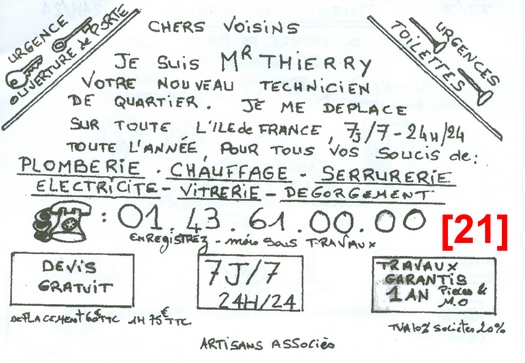 URGENCE
OUVERTURE de PORTE
CHERS VOISINS
URGENCES
TOILETTES
JE SUIS MR THIERRY
VOTRE NOUVEAU TECHNICIEN
DE QUARTIER. JE ME DEPLACE
SUR TOUTE L'ILE de FRANCE, 7J/7-24H/24
TOUTE L'ANNÉE, POUR TOUS VOS SOUCIS de:
PLOMBERIE. CHAUFFAGE - SERRURERIE
ELECTRICITE - VITRERIE - DEGORGEMENT
: 01.43.61.00.00
[21]
ENREGISTREZ - mois sous TRAVAUX
DEVIS
GRATUIT
7J/7
24H/24
TRAVAUX
GARANTIS
1 AN Pieces &
M.O
DEPLACEMENT 60€TTC 1H 75€TTC
TVA 10% Sociétés 20%
ARTISANS ASSOCIÉS